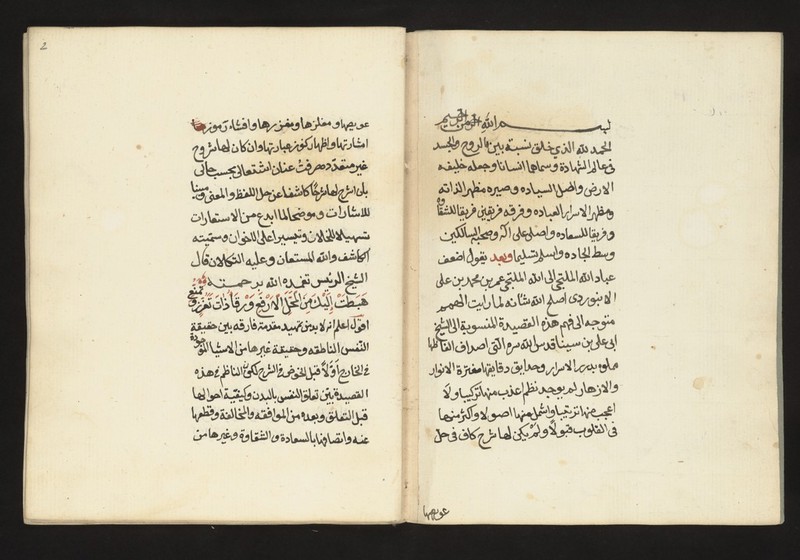 بسم الله الرحمن الرحيم
الحمد لله الذي خلق نسبة بين الروح والجسد
في عالم الشهادة وسماها انسانا وجعله خليفه
الارض واصل السياده وصيره مظهر الذاته
ومظهر الاسرار العباده وفرقه فريقين فريقا للشقاوه
وفريقا للسعاده واصلي على اله وصحبه السالكين
وسط الجاده واسلم تسليما وبعد يقول اضعف
عباد الله الملتجي الى الله الملتجي عمر بن محمد بن علي
الابنوردي اصلح الله شانه لما رايت الهمم
متوجه الى فهم هذه القصيدة المنسوبة الى الشيخ
ابي علي بن سينا قدس الله سره التي اصداف الفاظها
مملوءه بدرر الاسرار وحدايق دقايقها مفترة الانوار
والازهار لم يوجد نظم اعذب منها تركيبا ولا
اعجب منها ترتيبا واشمل منها اصولا واكثر منها
في القلوب قبولا ولم يكن لها شرح كاف في حل
عويصها
2
عويصها ومغلزها ومغزرها وافشاء رموز
اشارتها واظهار كنوز عبارتها وان كان لها شروح
غير متعدده صرفت عنان اشتغالي بحسب حالي
بان اشرح لها شرحا كاشفا عن حل اللفظ والمعنى ومبينا
للاشارات وموضحا لما ابدع من الاستعارات
تسهيلا للخلان وتيسيرا على الاخوان وسميته
الكاشف والله المستعان وعليه التكلان قال
الشيخ الريس تغمده الله برحمته
هبطت اليك من المحل الارفع ورقاء ذات تعزز وتمنع
اقول اعلم انه لا بد من تمهيد مقدمة فارقه بين حقيقة
النفس الناطقه وحقيقة غيرها من الاشيا الموجودة
في الخارج اولا قبل الخوض في الشرح لكون الناظم في هذه
القصيدة بين تعلق النفس بالبدن وكيفية احوالها
قبل التعلق وبعده من الموافقه والمخالفة وقطعها
عنه واتصافها بالسعادة والشقاوة وغيرها من